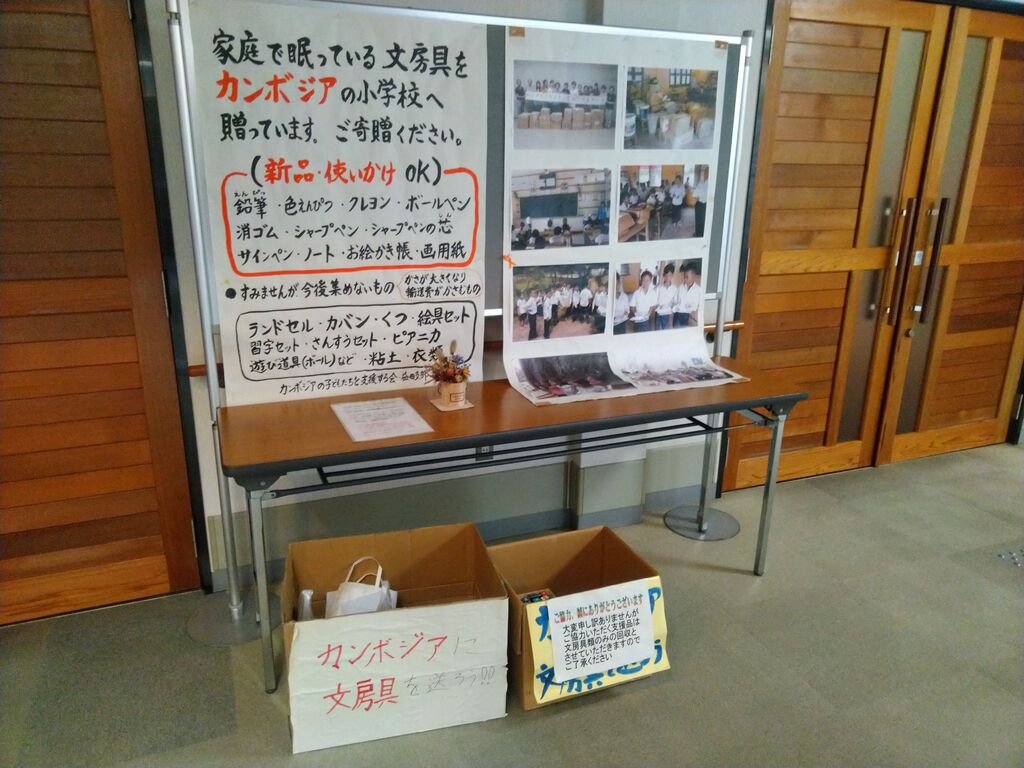 家庭で眠っている文房具を
カンボジアの小学校へ
贈っています。ご寄贈ください。
(新品・使いかけ OK)
えんぴつ
鉛筆・色えんぴつ・クレヨン・ボールペン
しん
消ゴム・シャープペン・シャープペンの芯
サインペン・ノート・お絵かき帳・画用紙
●すみませんが今後集めないもの
かさが大きくなり
輸送費がかさむもの
ランドセル・カバン・くつ・絵具セット
習字セット・さんすうセット・ピアニカ
遊び道具(ボール)など・粘土・衣類
カンボジアの子どもたちを支援する会
カンボジアに
文房具を送ろう!!
ご協力、誠にありがとうございます
大変申し訳ありませんが
ご協力いただく支援品は
文房具類のみの回収と
させていただきますので
ご了承ください